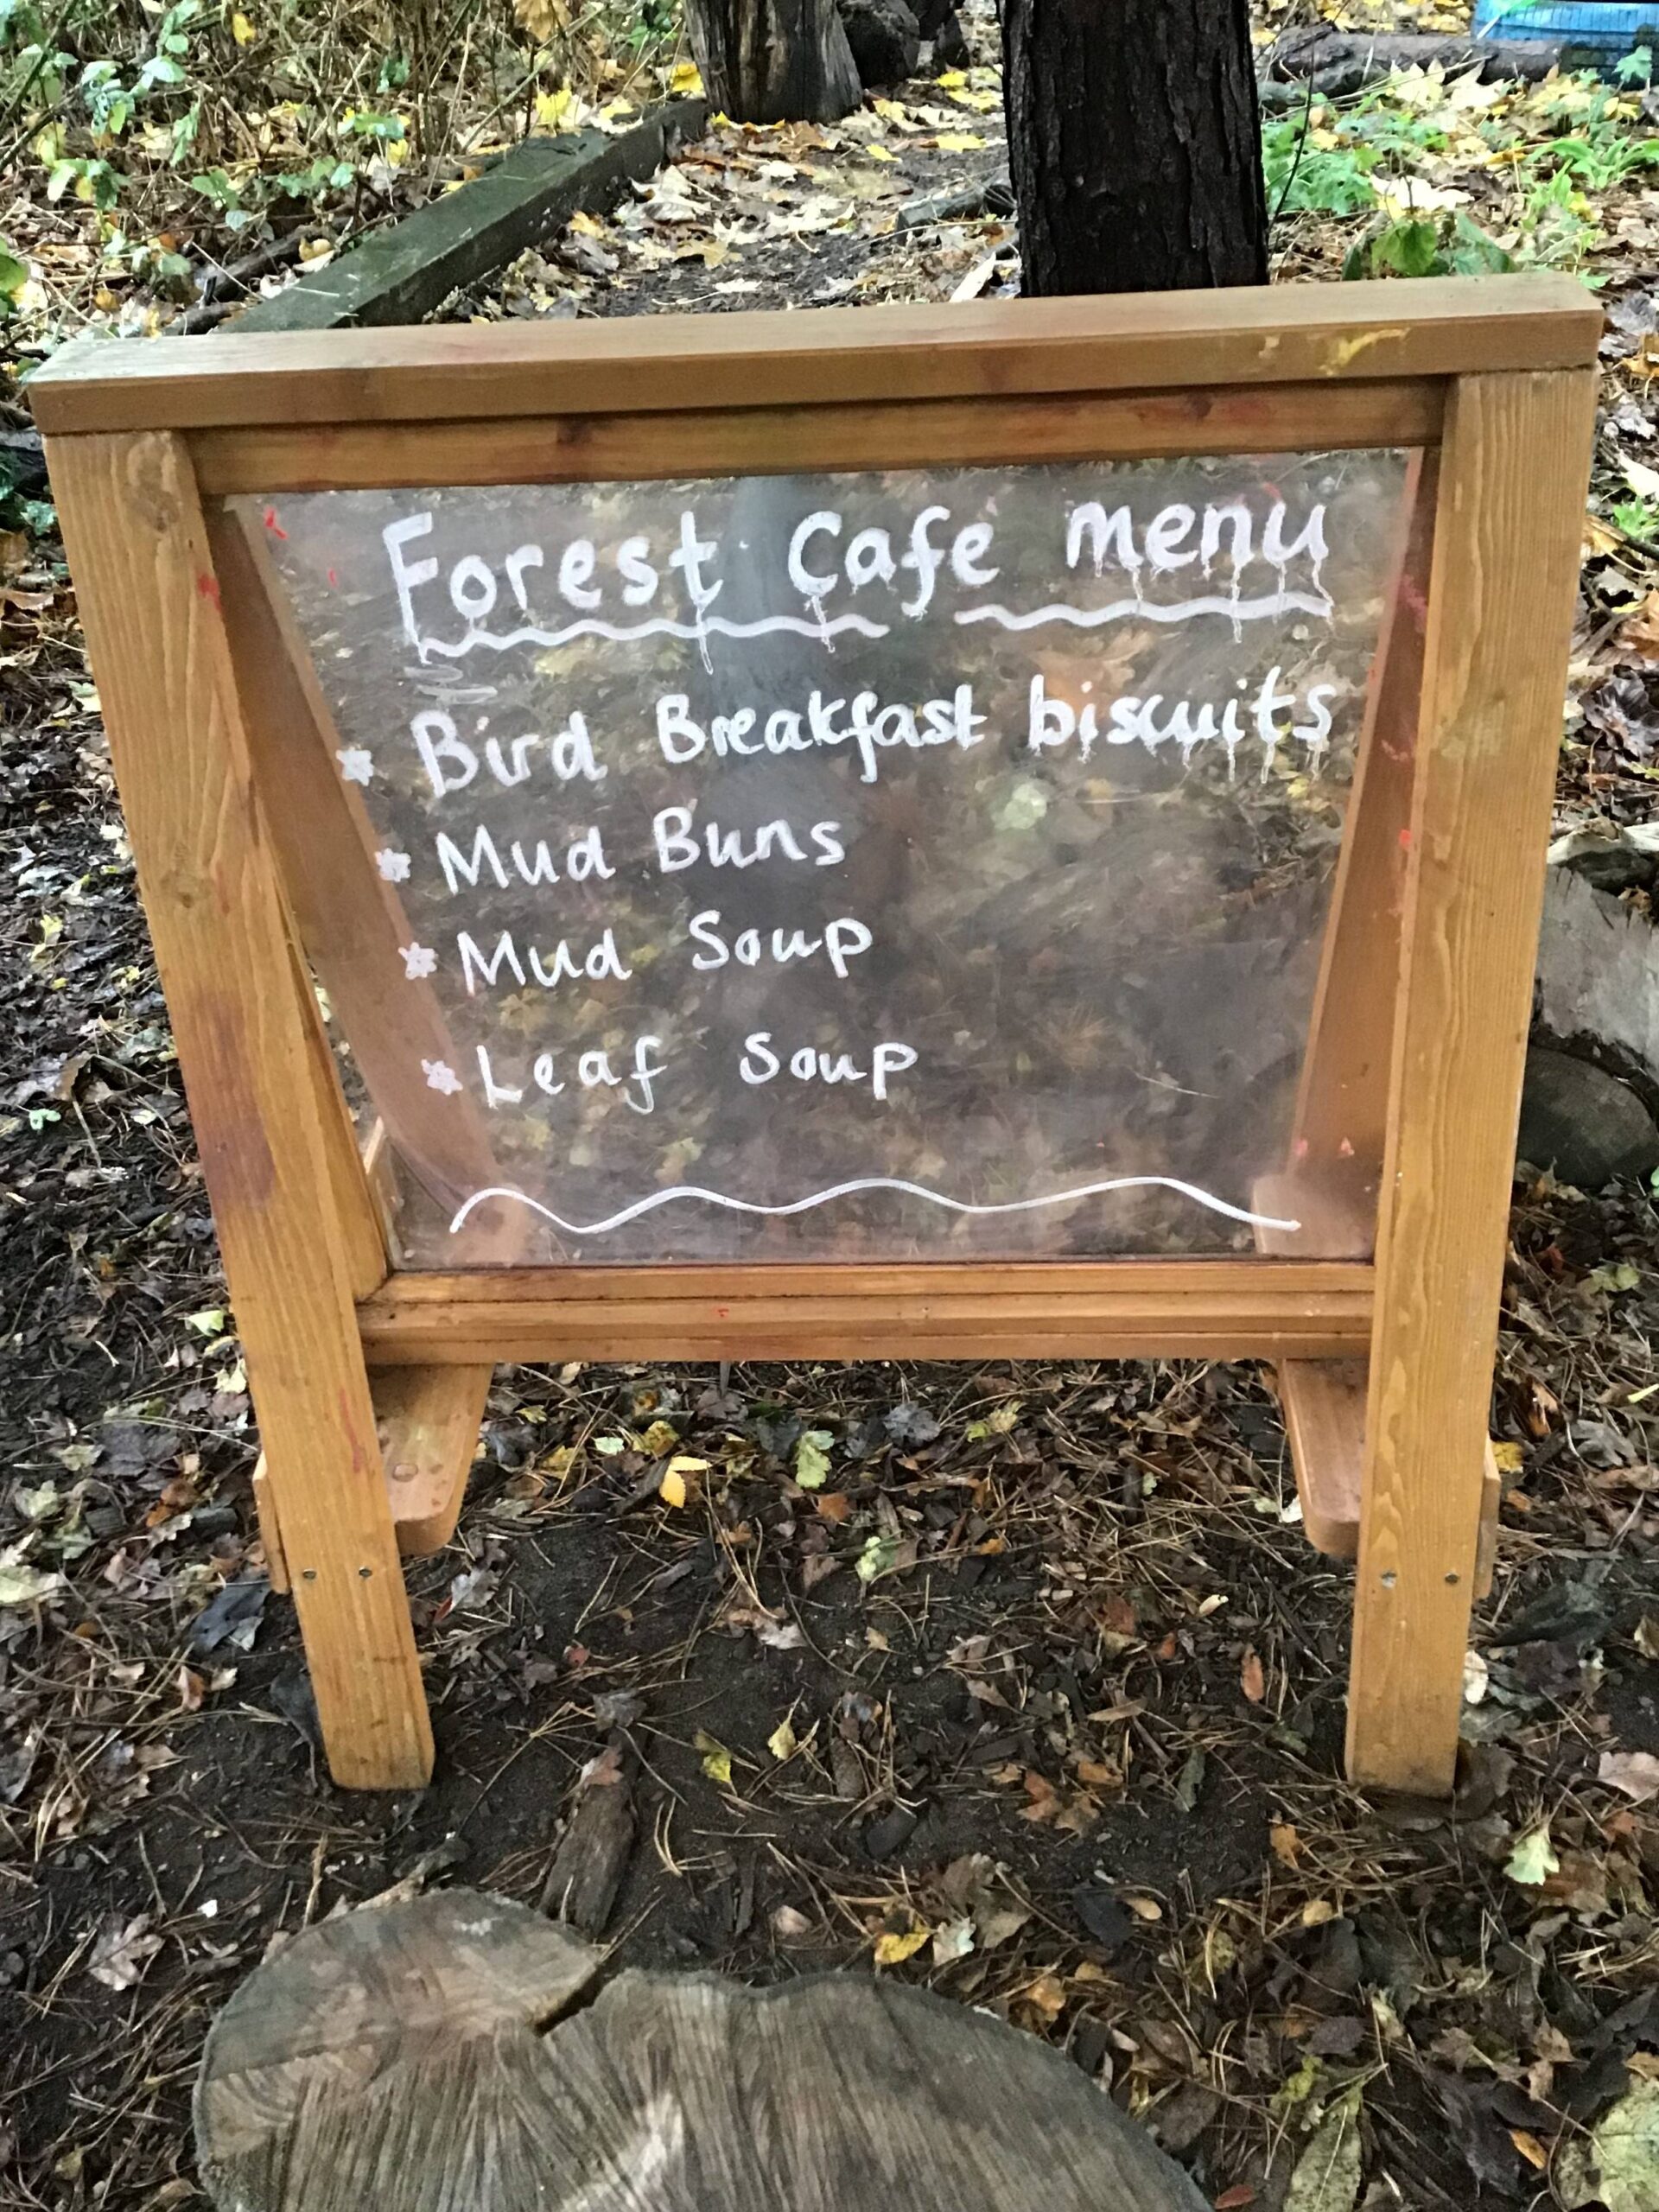 Forest Cafe menu
* Bird Breakfast biscuits
* Mud Buns
* Mud Soup
* Leaf Soup